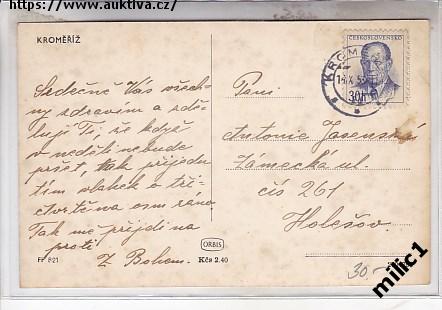 https://www.auktiva.cz/
KROMĚŘÍŽ
Srdečně Vás všech-
ny zdravím a sdě-
luji Ti, že když
v neděli nebude
pršet, tak přijedu
tím vlakem o tři-
čtvrtě na osm ráno.
Tak mě přijdi na
proti
Z Bohem.
FF 821
ORBIS
Kčs 2.40
ČESKOSLOVENSKO
30h
Paní
Antonie Jasenská
Zámecká ul.
čís 261
Holešov
30,-
milic1